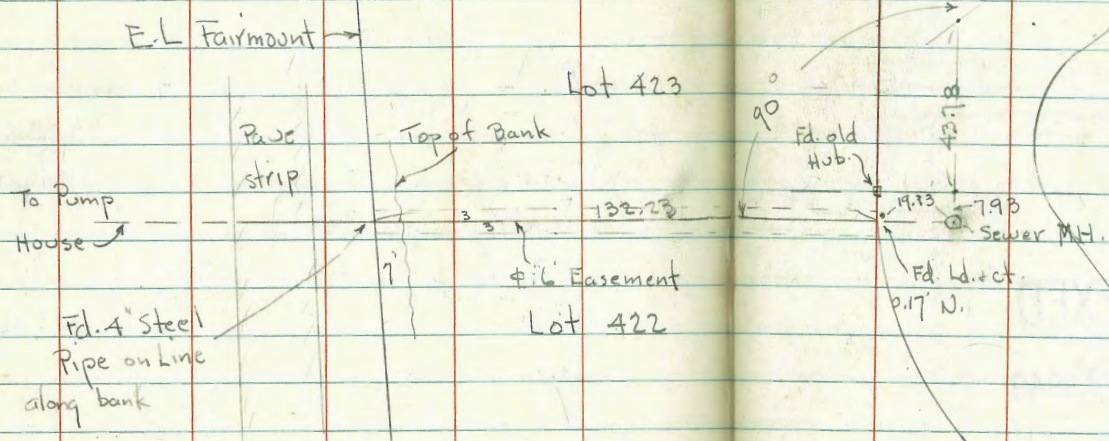 E.L Fairmount
Lot 423
90°
43.78
Pave
strip
Top of Bank
Fd. old
Hub.
To Pump
House
3
3
132.23
19.33
7.93
Sewer MH.
7'
6' Easement
Fd. Ld. & ct.
0.17' N.
Fd. 4" Steel
Pipe on Line
along bank
Lot 422